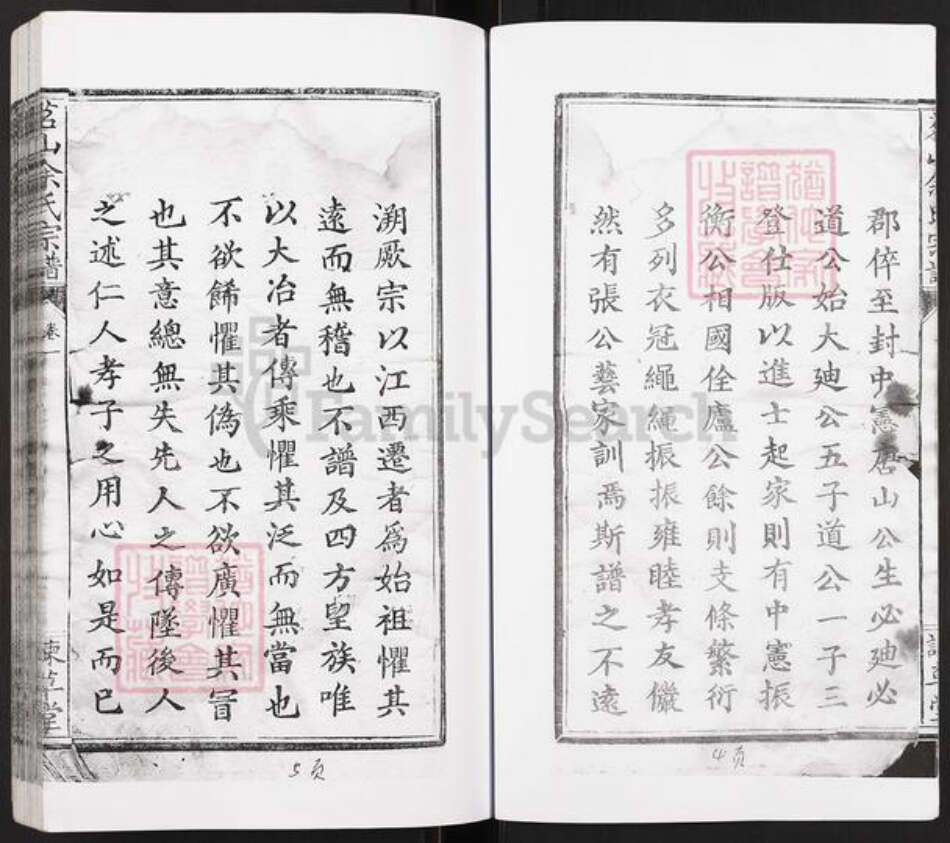 郡倅至封中憲唐山公生必廸必
道公始大廸公五子道公一子三
登仕版以進士起家則有中憲振
衡公相國佺廬公餘則支條繁衍
多列衣冠繩繩振振雍睦孝友儼
然有張公藝家訓焉斯譜之不遠
4页
溯厥宗以江西遷者為始祖懼其
遠而無稽也不譜及四方望族唯
以大冶者傳乘懼其泛而無當也
不欲餙懼其偽也不欲廣懼其冒
也其意總無失先人之傳墜後人
之述仁人孝子之用心如是而已
茗山余氏宗譜
卷一
諫草堂
5页
FamilySearch